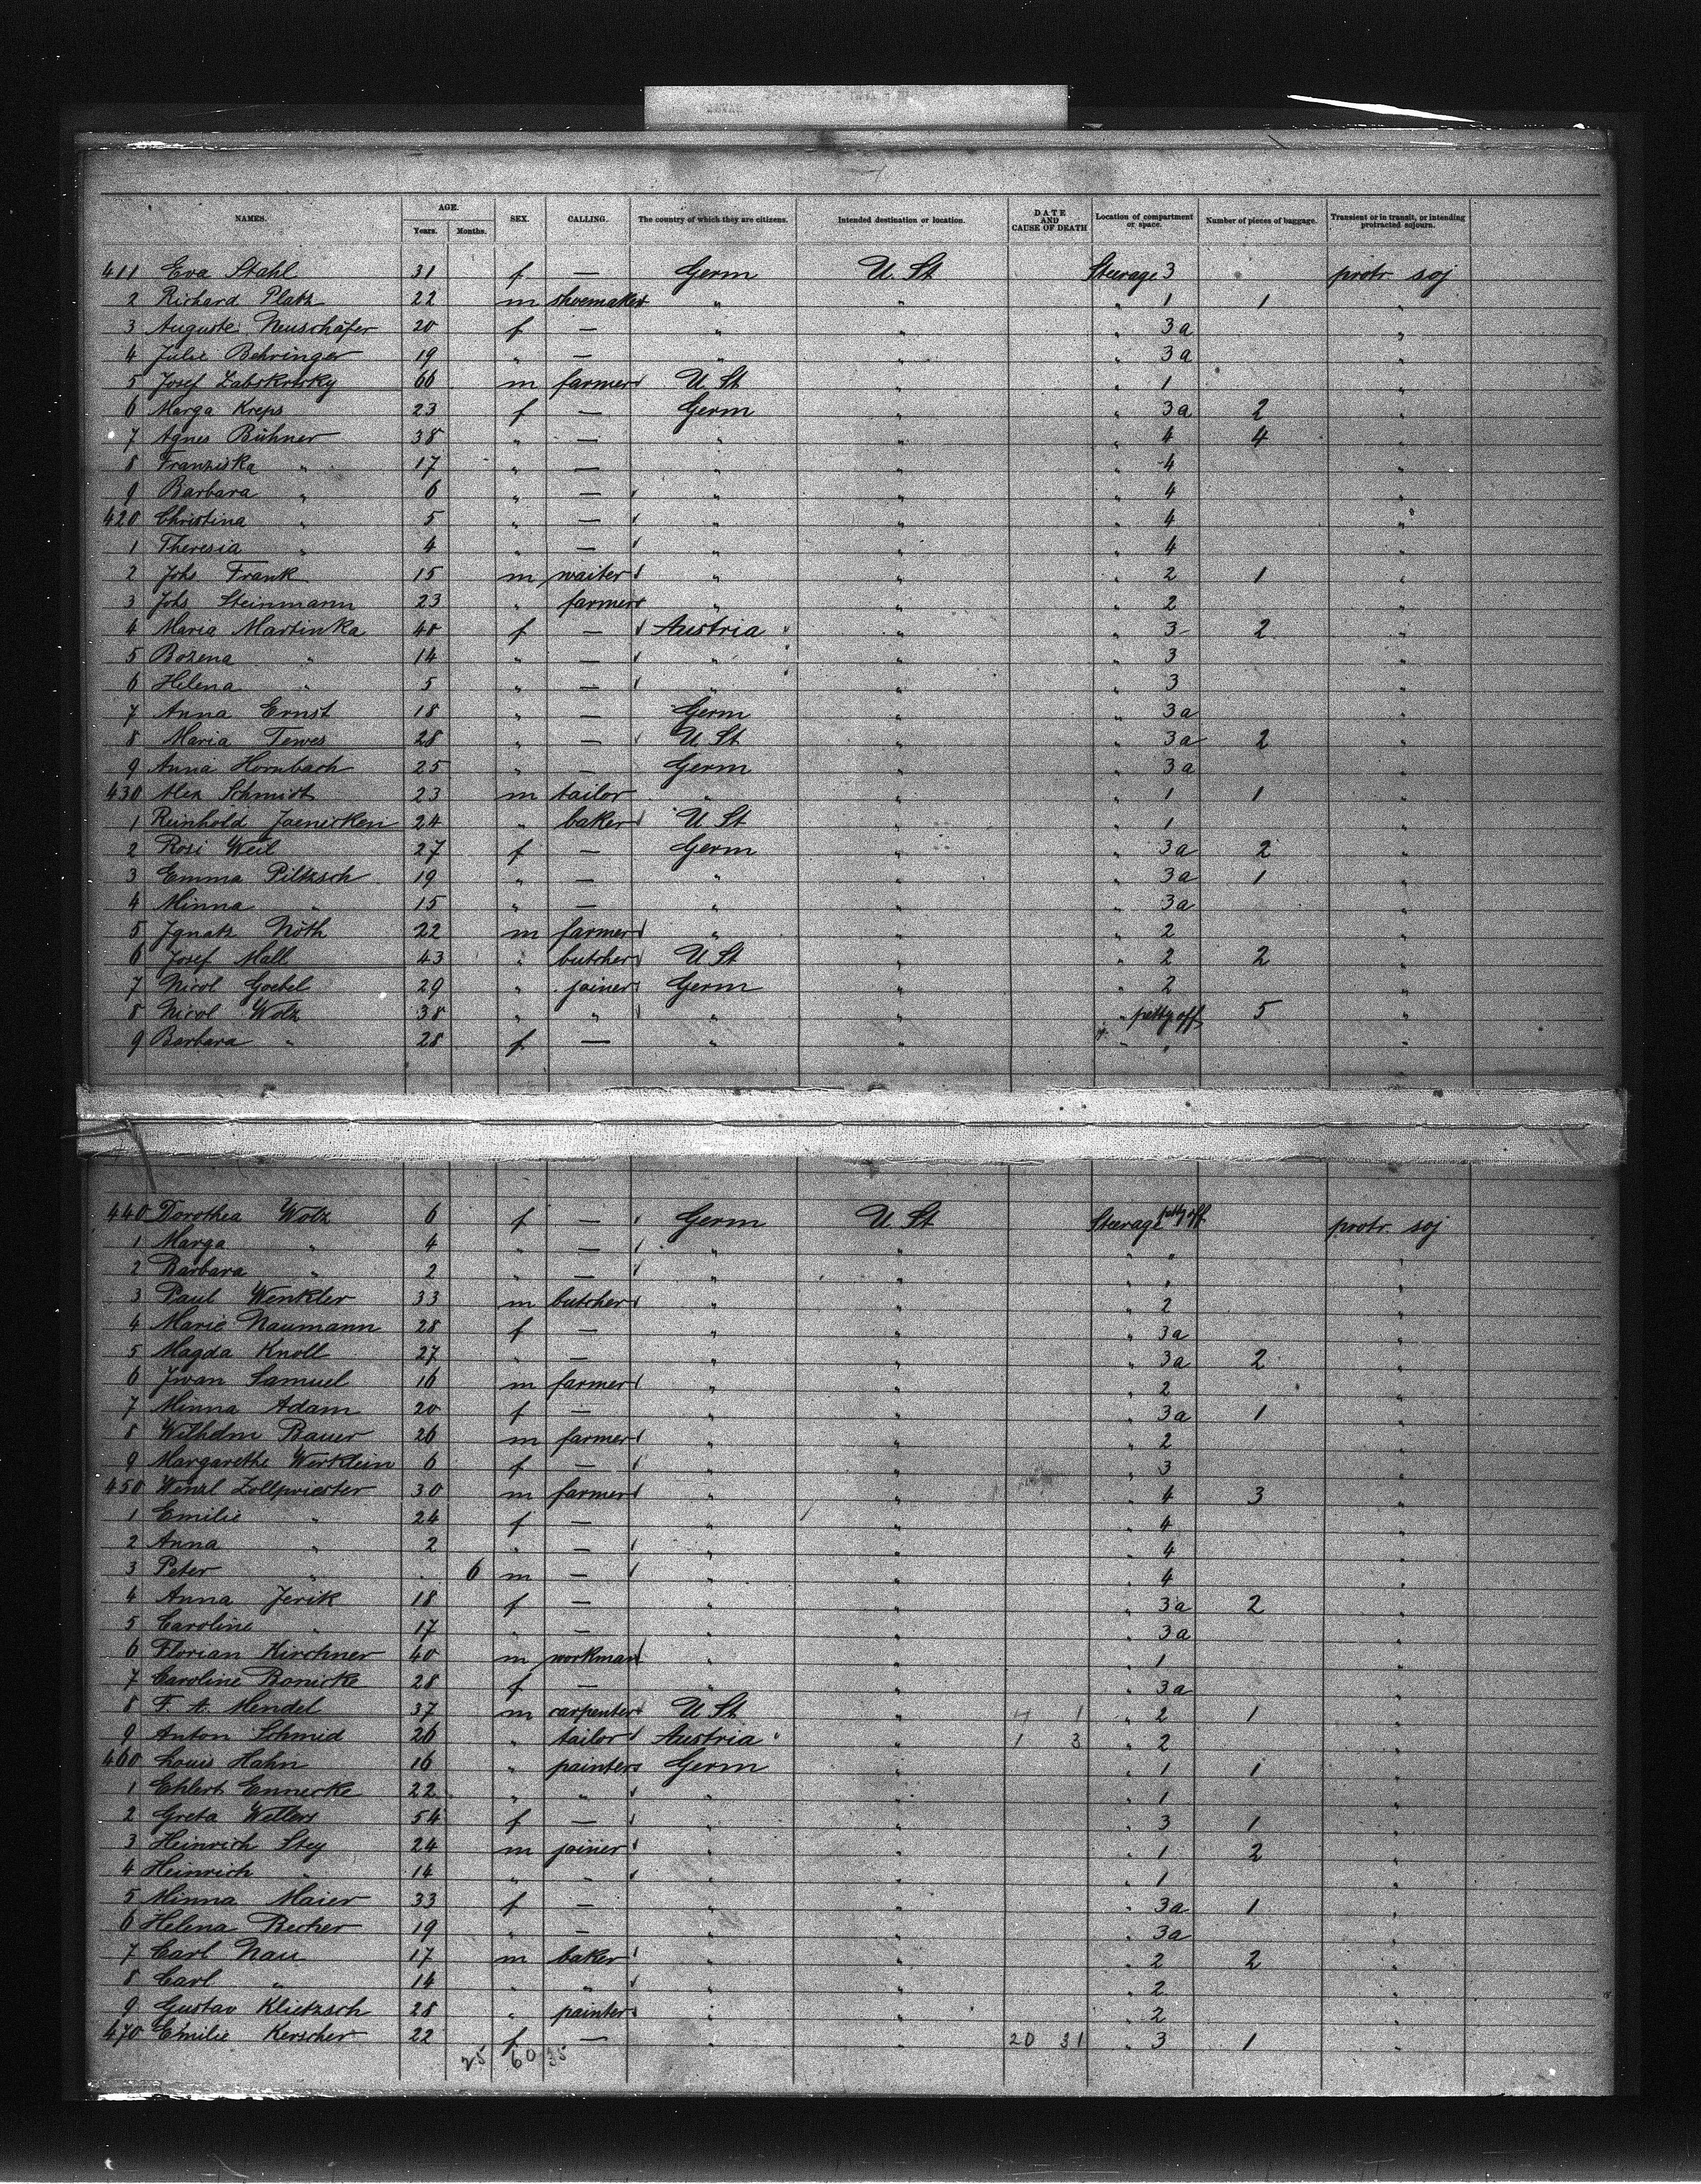 NAMES. AGE. Years. Months. SEX. CALLING. The country of which they are citizens. Intended destination or location. DATE AND CAUSE OF DEATH Location of compartment or space. Number of pieces of baggage. Transient or in transit, or intending protracted sojourn.
411 Eva Stahl 31 f — Germ U. St Steerage 3 protr. soj
2 Richard Platz 22 m shoemaker " " " 1 1 "
3 Auguste Neuschäfer 20 f — " " " 3a "
4 Julie Behringer 19 " — " " " 3a "
5 Josef 66 m farmer U St " " 1 "
6 Marga Kreps 23 f — Germ " " 3a 2 "
7 Agnes Bühner 38 " — " " " 4 4 "
8 Franziska " 17 " — " " " 4 "
9 Barbara " 6 " — " " " 4 "
420 Christina " 5 " — " " " 4 "
1 Theresia " 4 " — " " " 4 "
2 Johs Frank 15 m waiter " " " 2 1 "
3 Johs Steinmann 23 " farmer " " " 2 "
4 Maria Martinka 40 f — Austria " " 3 2 "
5 Bozena " 14 " — " " " 3 "
6 Helena " 5 " — " " " 3 "
7 Anna Ernst 18 " — Germ " " 3a "
8 Maria Tewes 28 " — U St " " 3a 2 "
9 Anna Hornbach 25 " — Germ " " 3a "
430 Alex Schmidt 23 m tailor " " " 1 1 "
1 Reinhold Jaenicken 24 " baker U St " " 1 "
2 Rosi Weil 27 f — Germ " " 3a 2 "
3 Emma Piltzsch 19 " — " " " 3a 1 "
4 Minna " 15 " — " " " 3a "
5 Ignatz Nöth 22 m farmer " " " 2 "
6 Josef Mall 43 " butcher U St " " 2 2 "
7 Nicol Goebel 29 " joiner Germ " " 2 "
8 Nicol Wolz 38 " " " " " petty off 5 "
9 Barbara " 28 f — " " " " "
440 Dorothea Wolz 6 f — Germ U St Steerage petty off protr. soj
1 Marga " 4 " — " " " " "
2 Barbara " 2 " — " " " " "
3 Paul Wenkler 33 m butcher " " " 2 "
4 Marie Naumann 28 f — " " " 3a "
5 Magda Knoll 27 " — " " " 3a 2 "
6 Iwan Samuel 16 m farmer " " " 2 "
7 Minna Adam 20 f — " " " 3a 1 "
8 Wilhelm Bauer 26 m farmer " " " 2 "
9 Margarethe Werklein 6 f — " " " 3 "
450 Wenzl Zollpriester 30 m farmer " " " 4 3 "
1 Emilie " 24 f — " " " 4 "
2 Anna " 2 " — " " " 4 "
3 Peter " 6 m — " " " 4 "
4 Anna Jerik 18 f — " " " 3a 2 "
5 Caroline " 17 " — " " " 3a "
6 Florian Kirchner 40 m workman " " " 1 "
7 Caroline Bonicke 28 f — " " " 3a "
8 F. A. Mendel 37 m carpenter U St " 1 " 2 1 "
9 Anton Schmid 26 " tailor Austria " 1 3 " 2 "
460 Louis Hahn 16 " painter Germ " " 1 1 "
1 Ehlert Ennecke 22 " " " " " 1 "
2 Greta Wellers 54 f — " " " 3 1 "
3 Heinrich Stey 24 m joiner " " " 1 2 "
4 Heinrich " 14 " " " " " 1 "
5 Minna Maier 33 f — " " " 3a 1 "
6 Helena Becker 19 " — " " " 3a "
7 Carl Nau 17 m baker " " " 2 2 "
8 Carl " 14 " " " " " 2 "
9 Gustav Klietzsch 28 " painter " " " 2 "
470 Emilie Kerscher 22 f — " " 20 31 " 3 1 "
25 60 35